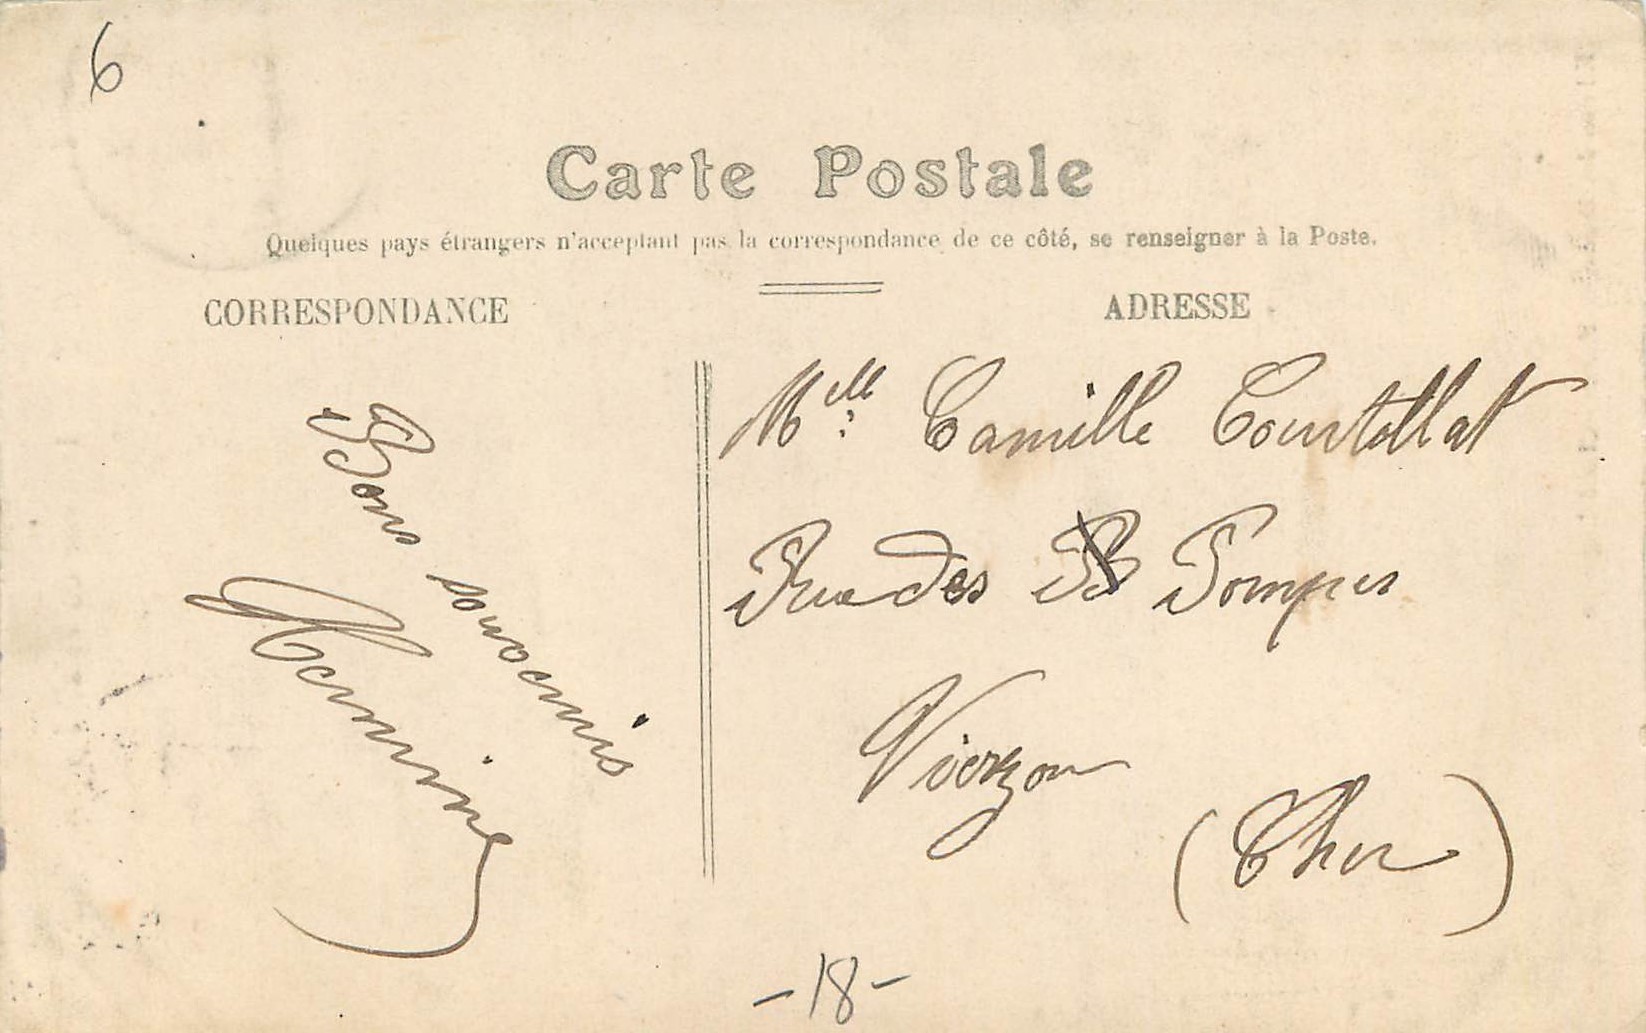 6
Carte Postale
Quelques pays étrangers n'acceptant pas la correspondance de ce côté, se renseigner à la Poste.
CORRESPONDANCE
ADRESSE
Bons souvenirs
Hermine
Melle Camille Courtillat
Rue des Pompes
Vierzon
(Cher)
-18-